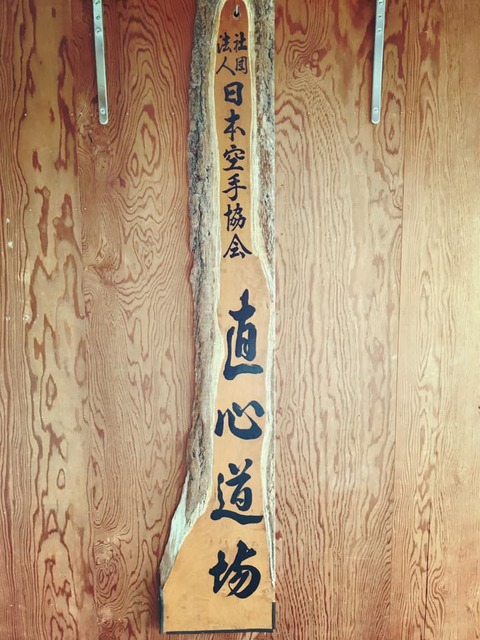 社団
法人
日本空手協会
直心道場